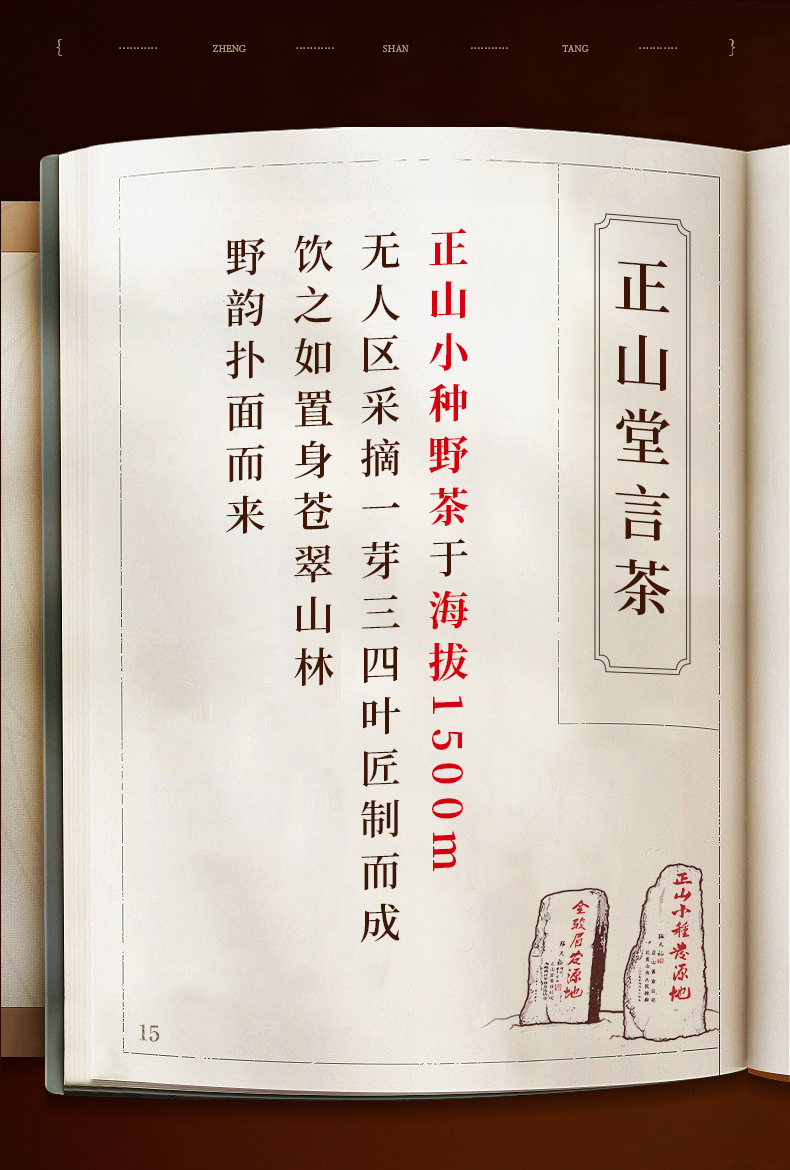 ZHENG SHAN TANG
正山堂言茶
正山小种野茶于海拔1500m
无人区采摘一芽三四叶匠制而成
饮之如置身苍翠山林
野韵扑面而来
正山小種發源地
金骏眉发源地
15